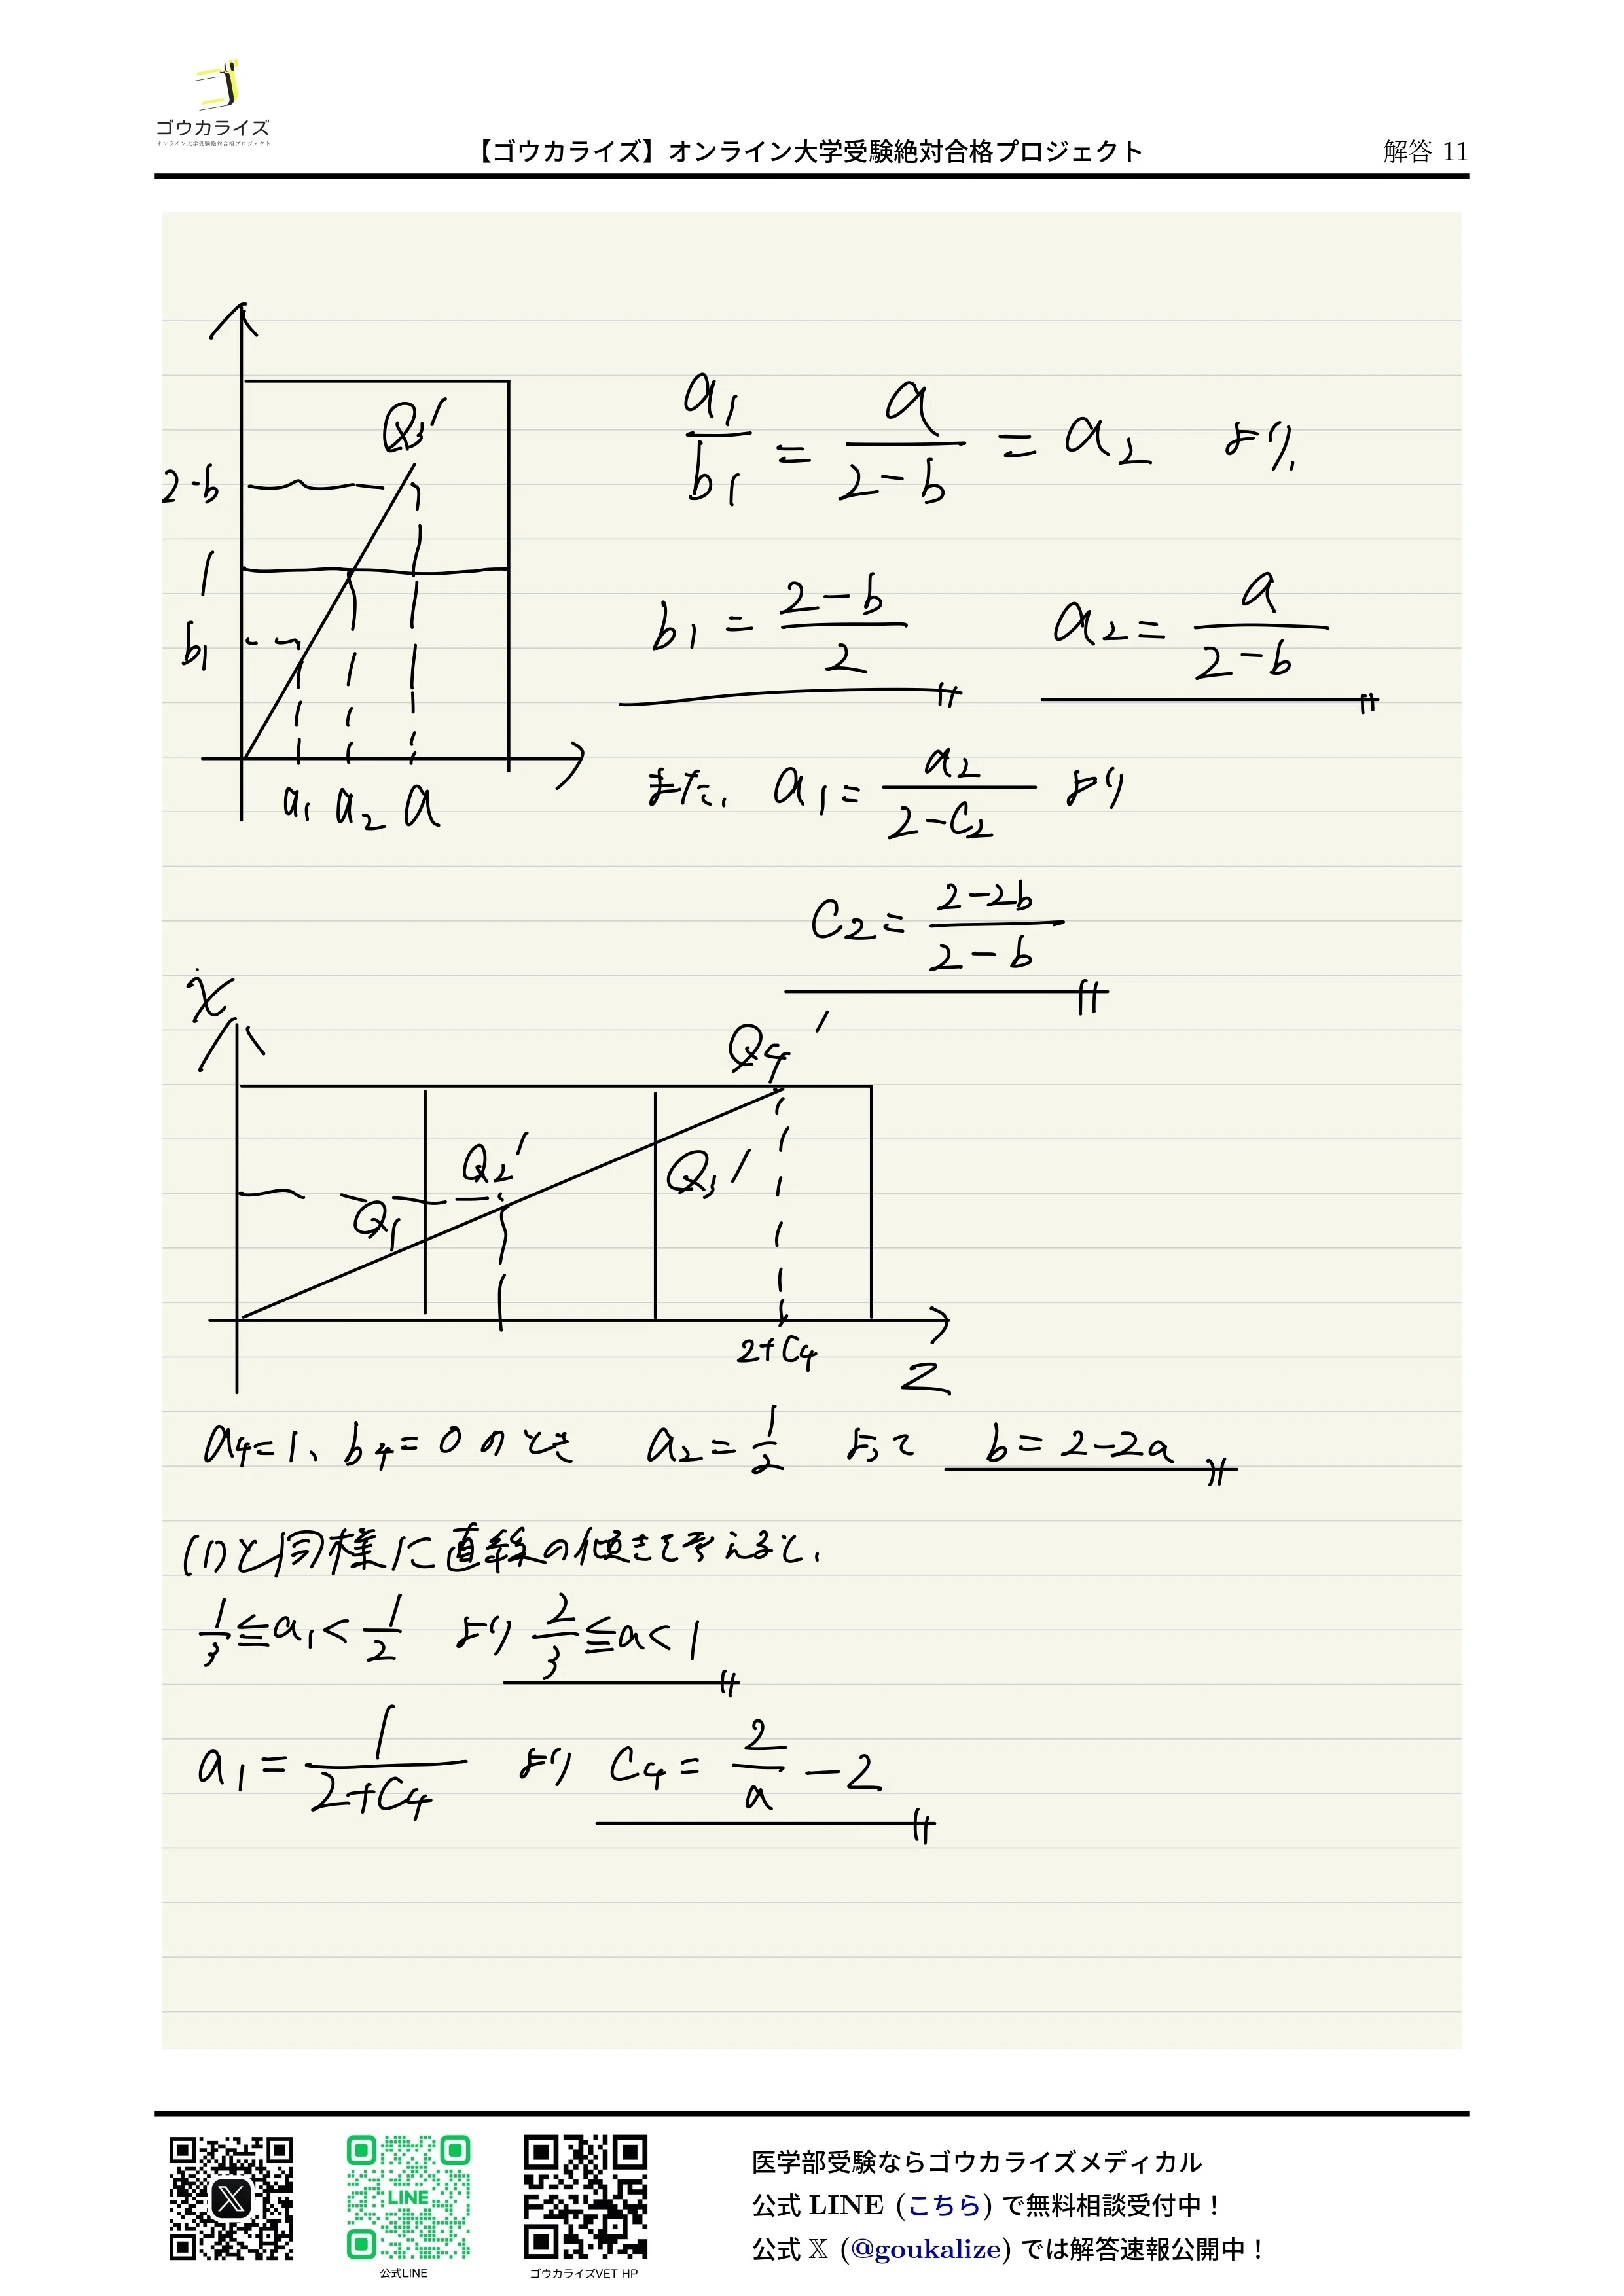 ゴウカライズ
オンライン大学受験絶対合格プロジェクト
【ゴウカライズ】オンライン大学受験絶対合格プロジェクト 解答 11
Q3′
2-b
1
b1
a1 a2 a
a1/b1 = a/(2-b) = a2 より,
b1 = (2-b)/2 a2 = a/(2-b)
また, a1 = a2/(2-C2) より
C2 = (2-2b)/(2-b)
x
Q4′
Q2′
Q3′
Q1
2+C4
Z
a4=1、b4=0 のとき a2=1/2 よって b=2-2a
(1)と同様に直線の傾きを考えると,
1/3≦a1<1/2 より 2/3≦a<1
a1 = 1/(2+C4) より C4 = 2/a -2
LINE
公式LINE
ゴウカライズVET HP
医学部受験ならゴウカライズメディカル
公式 LINE (こちら) で無料相談受付中！
公式 𝕏 (@goukalize) では解答速報公開中！